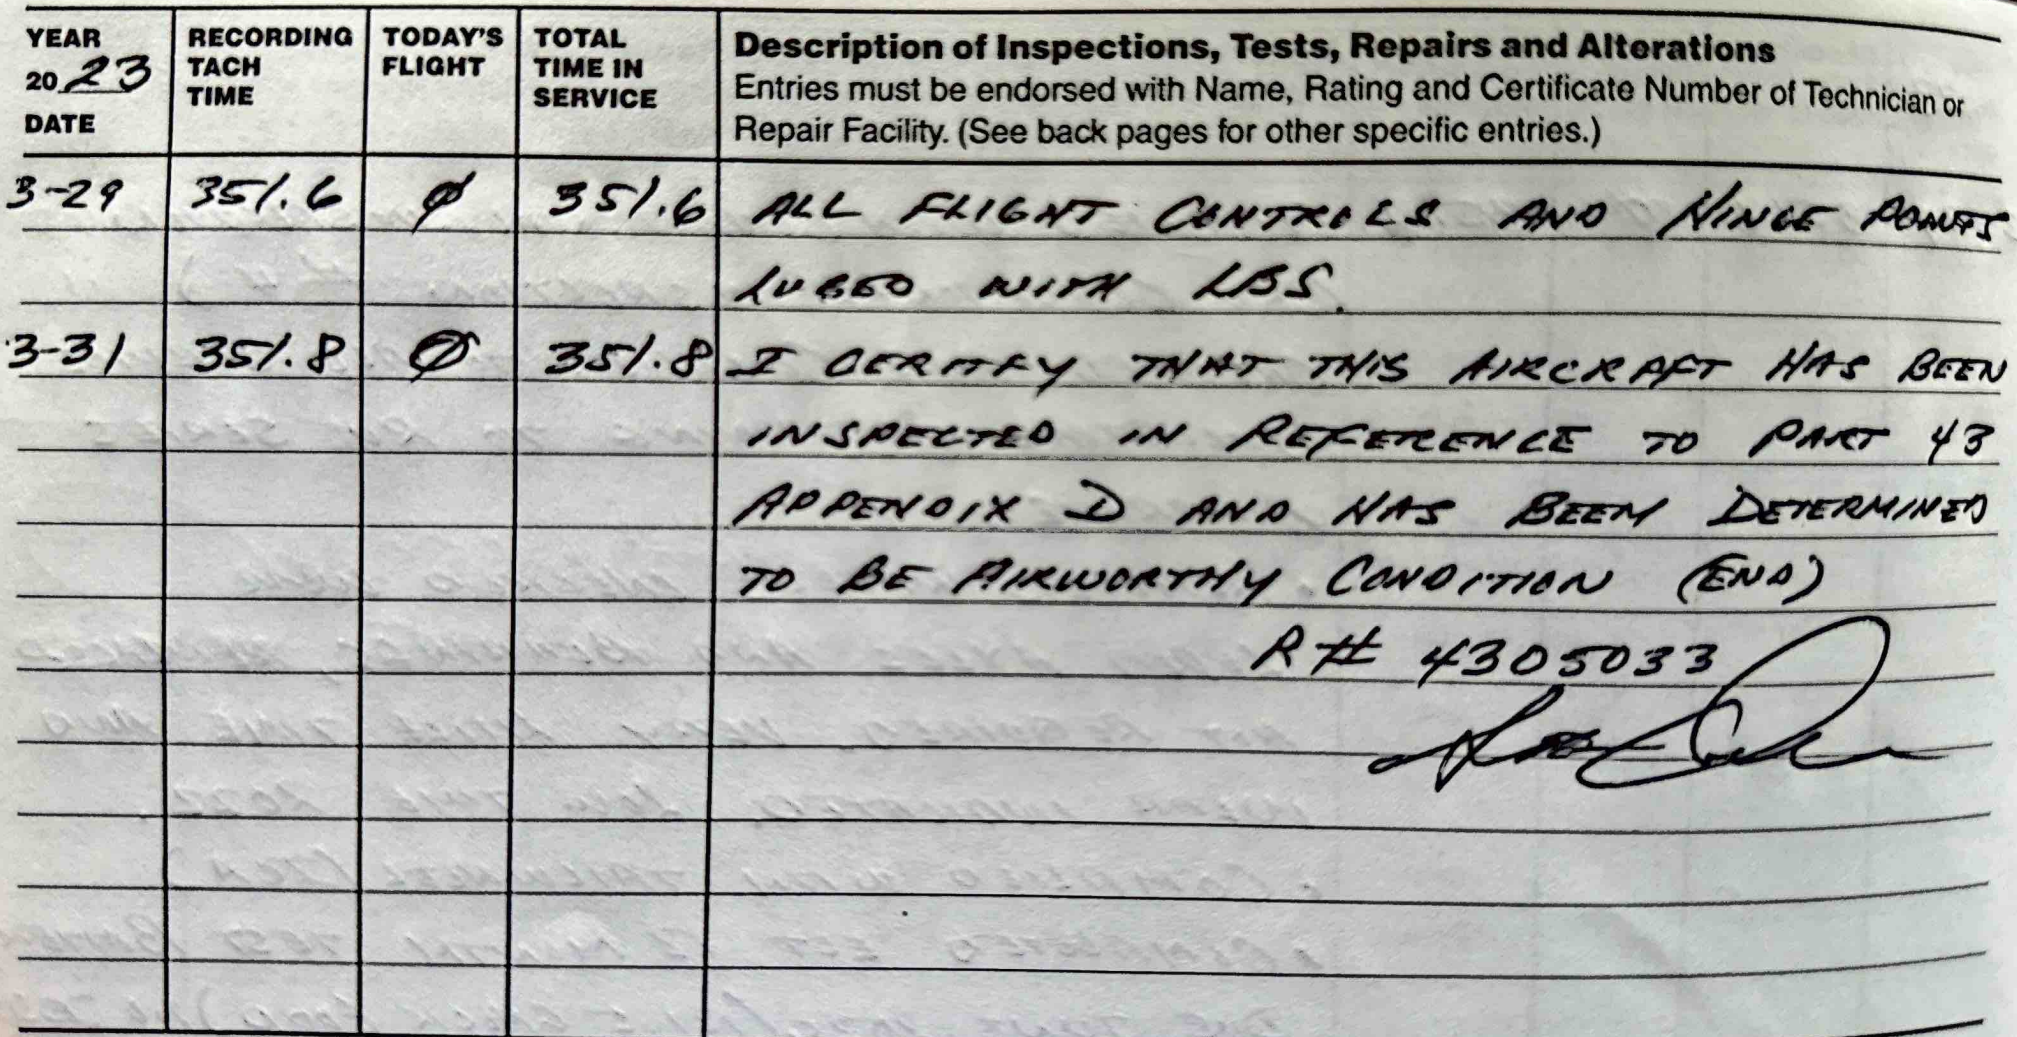 YEAR 2023 DATE
RECORDING TACH TIME
TODAY'S FLIGHT
TOTAL TIME IN SERVICE
Description of Inspections, Tests, Repairs and Alterations
Entries must be endorsed with Name, Rating and Certificate Number of Technician or
Repair Facility. (See back pages for other specific entries.)
3-29 351.6 Ø 351.6 ALL FLIGHT CONTROLS AND HINGE POINTS
LUBED WITH LBS.
3-31 351.8 Ø 351.8 I CERTIFY THAT THIS AIRCRAFT HAS BEEN
INSPECTED IN REFERENCE TO PART 43
APPENDIX D AND HAS BEEN DETERMINED
TO BE AIRWORTHY CONDITION (END)
R# 4305033